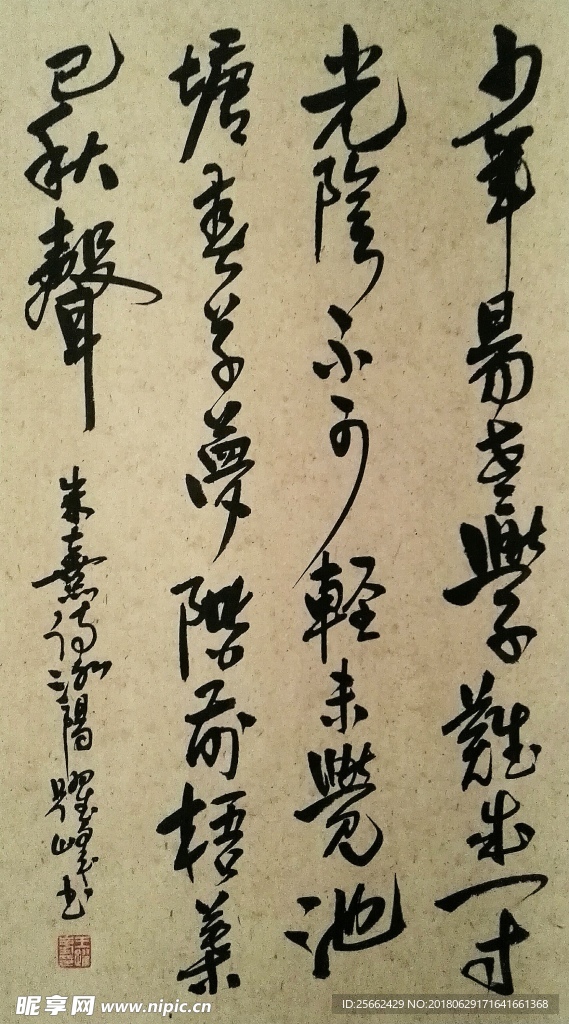 少年易老學難成一寸
光陰不可輕未覺池
塘春草夢階前梧葉
已秋聲
朱熹詩泌陽躍峰書
昵享网 www.nipic.cn
ID:25662429 NO:20180629171641661368